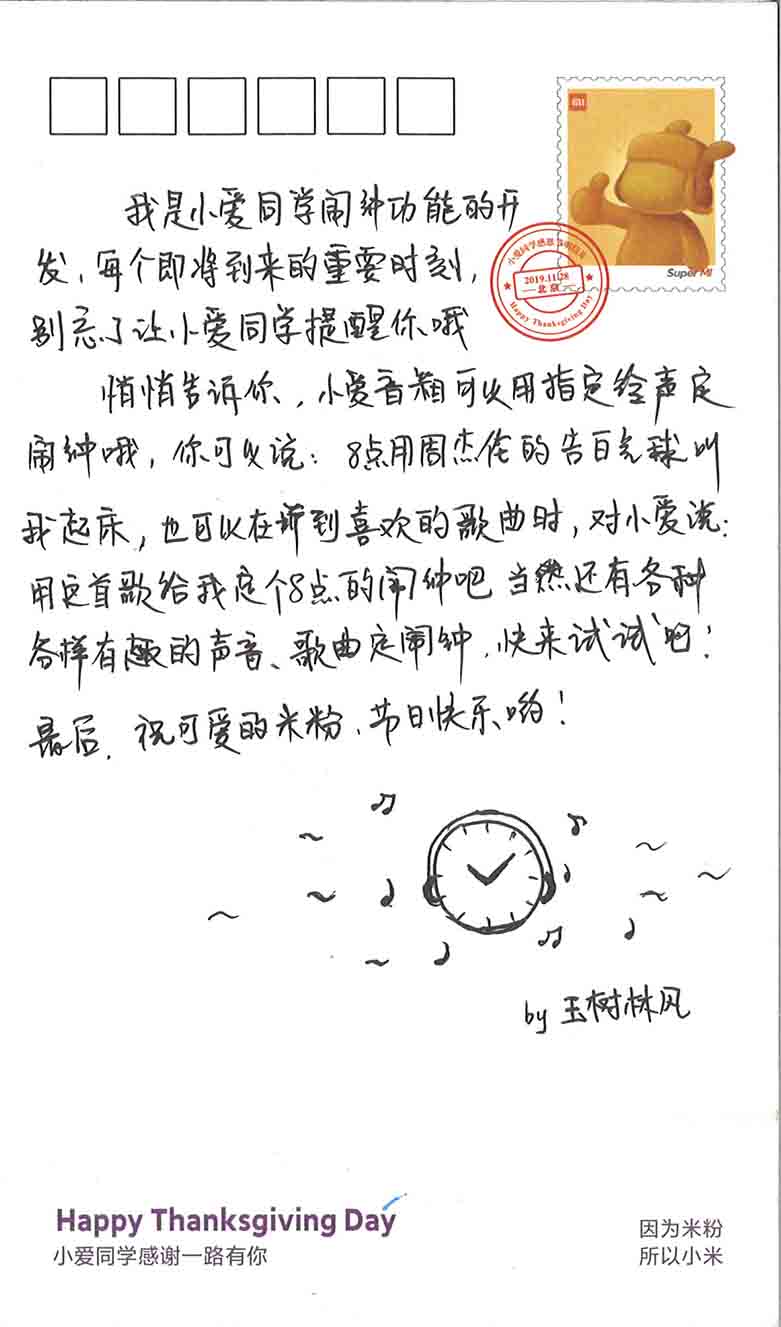 MI
Super MI
小爱同学感恩节明信片
2019.11.28
北京
Happy Thanksgiving Day
我是小爱同学闹钟功能的开
发，每个即将到来的重要时刻，
别忘了让小爱同学提醒你哦
悄悄告诉你，小爱音箱可以用指定铃声定
闹钟哦，你可以说：8点用周杰伦的告白气球叫
我起床，也可以在听到喜欢的歌曲时，对小爱说：
用这首歌给我定个8点的闹钟吧 当然还有各种
各样有趣的声音、歌曲定闹钟，快来试试吧！
最后，祝可爱的米粉，节日快乐哟！
by 玉树林风
Happy Thanksgiving Day
小爱同学感谢一路有你
因为米粉
所以小米